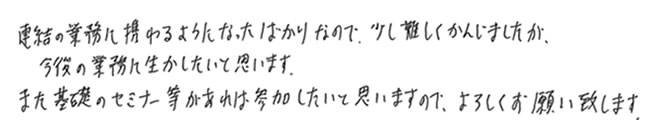 連結の業務に携わるようになったばかりなので、少し難しくかんじましたが、
今後の業務に生かしたいと思います。
また基礎のセミナー等があれば参加したいと思いますので、よろしくお願い致します。